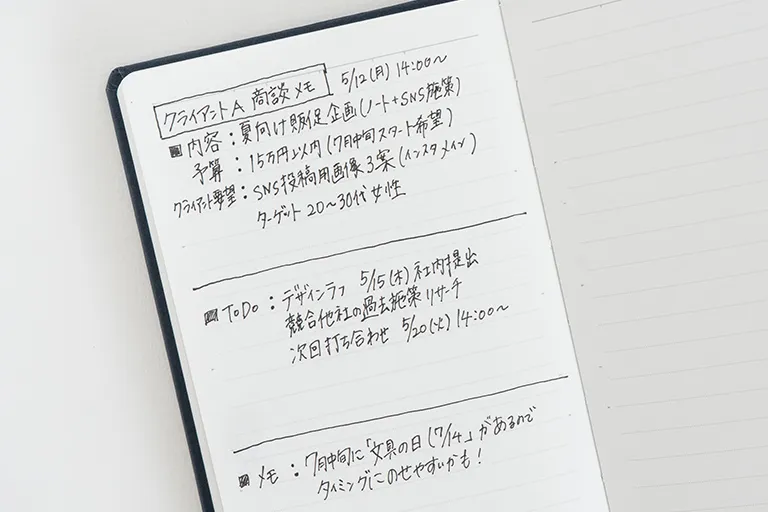 クライアントA 商談メモ 5/12(月) 14:00〜
■内容：夏向け販促企画(ノート+SNS施策)
予算：15万円以内(7月中旬スタート希望)
クライアント要望：SNS投稿用画像3案(インスタメイン)
ターゲット20〜30代女性
■ToDo：デザインラフ 5/15(木)社内提出
競合他社の過去施策リサーチ
次回打ち合わせ 5/20(火)14:00〜
■メモ：7月中旬に「文具の日(7/14」があるので
タイミングにのせやすいかも！